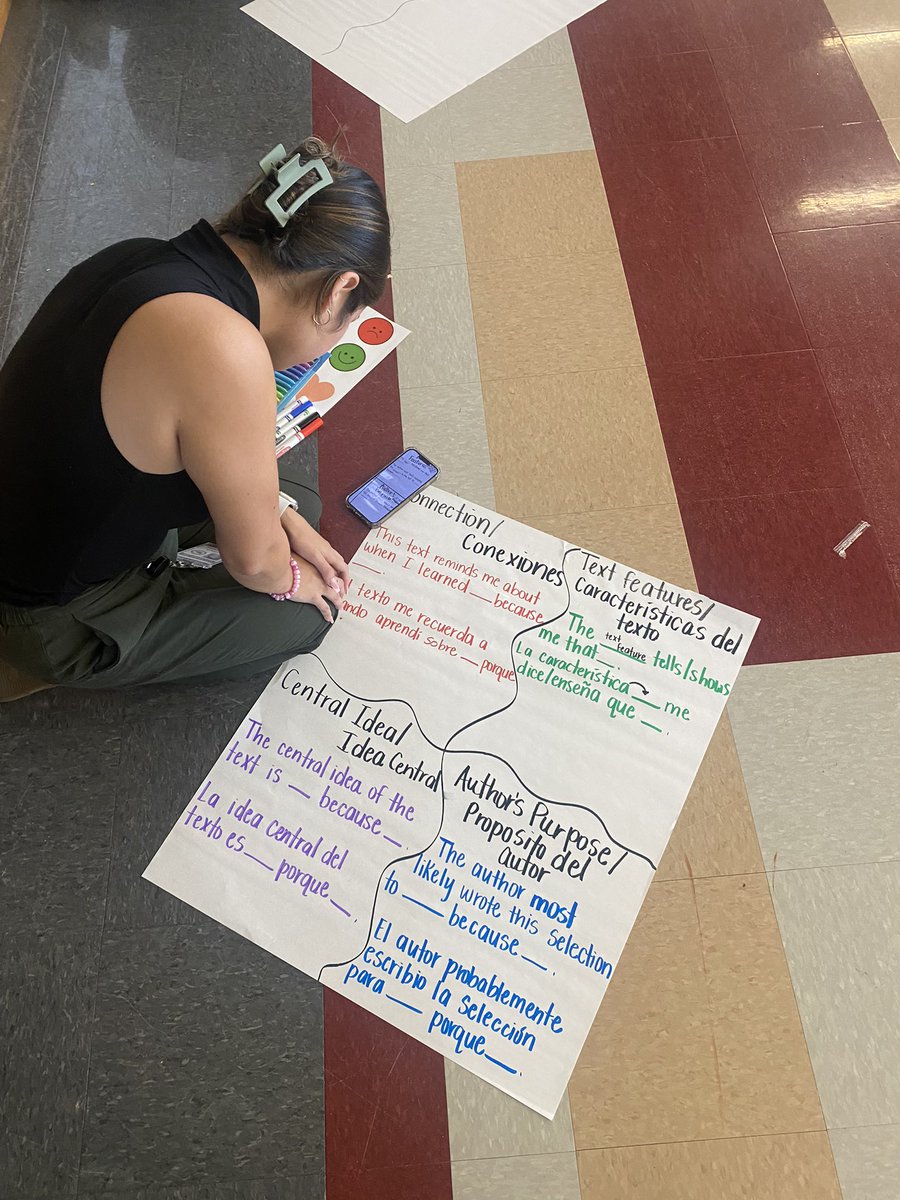 onnection/
Conexiones
This text reminds me about
when I learned __ because
__.
texto me recuerda a
ando aprendi sobre __ porque
Text features/
Características del
texto
The text feature tells/shows
me that __.
La característica __ me
dice/enseña que __.
Central Idea/
Idea Central
The central idea of the
text is __ because __.
La idea central del
texto es __ porque __.
Author's Purpose/
Proposito del
autor
The author most
likely wrote this selection
to __ because __.
El autor probablemente
escribio la selección
para __ porque __.